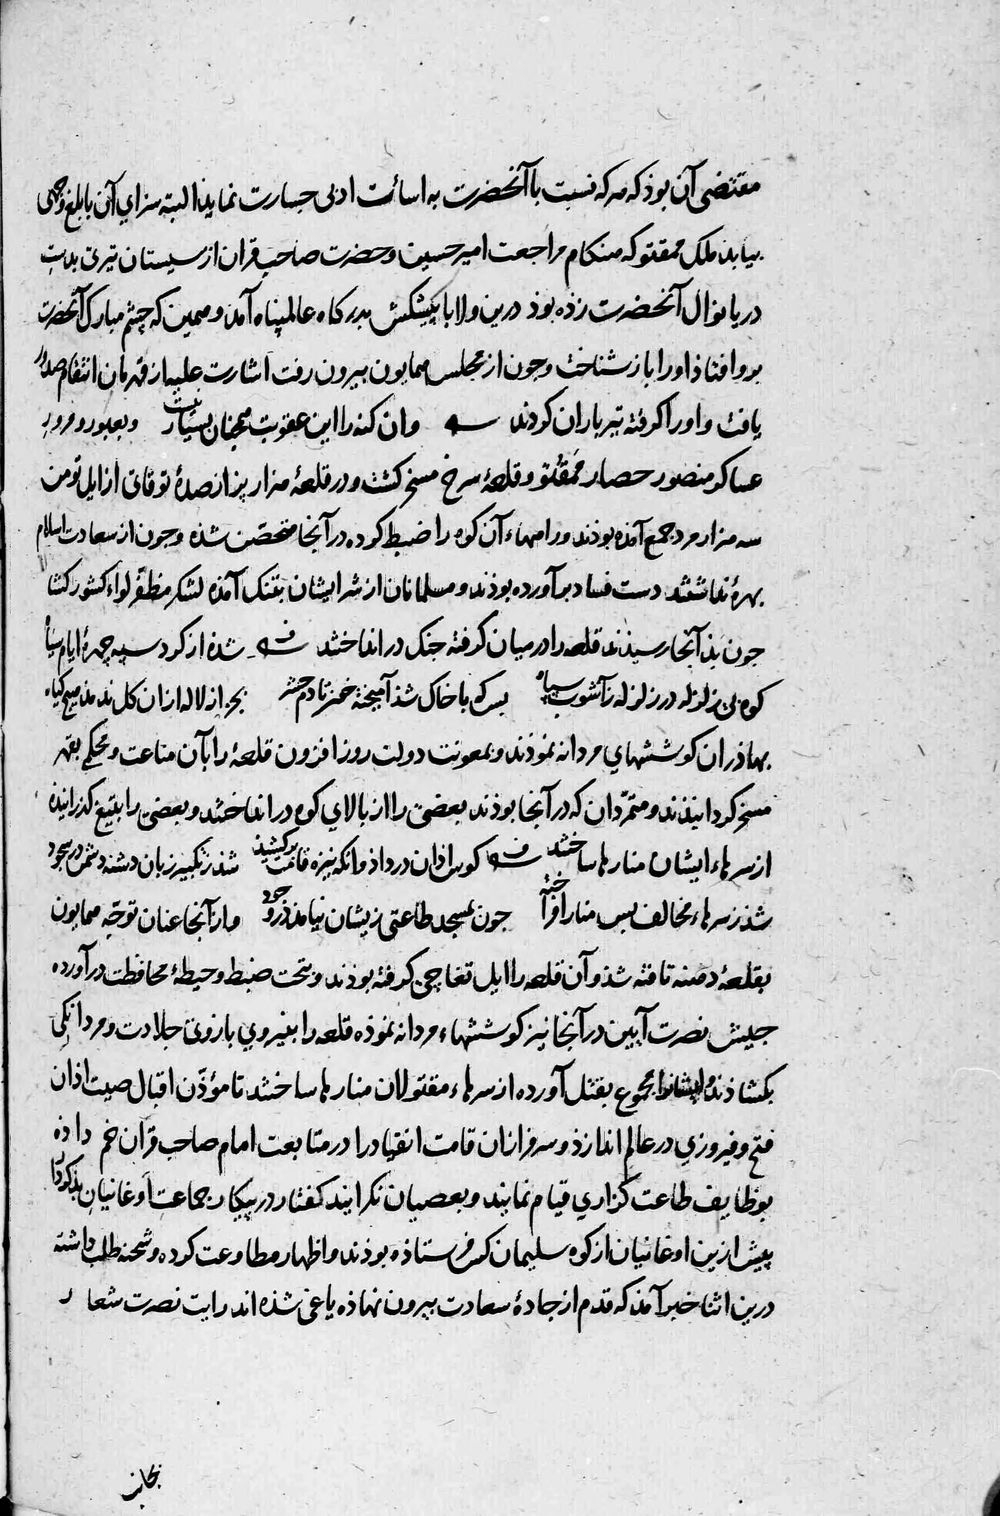 مقتضی آن بوذ که هر که نسبت با آنحضرت به اسائت ادبی جسارت نماید البته سزای آن بابلغ وجهی
بیابد ملک ممقتو که هنکام مراجعت امیر حسین و حضرت صاحب قران از سیستان تیری بدست
دریا نوال آنحضرت زده بوذ درین ولا با پیشکش بدرکاه عالمپناه آمد و همین که چشم مبارک آنحضرت
برو افتاذ او را باز شناخت و جون از مجلس همایون بیرون رفت اشارت علیه از قهرمان انتقام صدور
یافت و او را کرفته تیرباران کردند وان کنه را این عقوبت همچنان بسیار نیست و بعبور و مرور
عساکر منصور حصار ممقتو و قلعهٔ سرخ مسخر کشت و در قلعهٔ هزار پز از صدهٔ توقای از ایل تومن
سه هزار مرد جمع آمذه بوذند و راههاء آن کوه را ضبط کرده در آنجا متحصن شذه و جون از سعادت اسلام
بهرهٔ نداشتند دست فساد برآورده بوذند و مسلمانان از شر ایشان بتنک آمذه لشکر مظفر لواء کشور کشا
جون بذ آنجا رسیدند قلعه را در میان کرفته جنک در انداختند شذه از کرد سیه چهرهٔ ایام سیاه
کوه بی زلزله در زلزله ز آشوب سپاه بس که با خاک شذ آمیخته خمر تا دم حشر بجز از لاله ازان کل ندمد هیچ کیاه
بهاذران کوششهای مردانه نموذند و بمعونت دولت روز افزون قلعهٔ را بآن مناعت و محکمی بقهر
مسخر کردانیدند و متمردان که در آنجا بوذند بعضی را از بالای کوه در انداختند و بعضی را بتیغ کذرانیده
از سرهاء ایشان منارها ساختند کوس اذان در داذ وانکه نیزه قامت برکشید شذ ز تکبیر زبان دشنه دشمن در سجود
شذ ز سرهاء مخالف بس منار افراخته جون بمسجد طاعتی زیشان نیامذ در وجود و از آنجا عنان توجه همایون
بقلعهٔ دهنه تافته شذ و آن قلعه را ایل تغاجی کرفته بوذند و تحت ضبط و حیطهٔ محافظت درآورده
جیش نصرت آیین در آنجا نیز کوششهاء مردانه نموذه قلعه را بنیروی بازوی جلادت و مردانکی
بکشاذند و ایشانرا مجموع بقتل آورده از سرهاء مقتولان منارها ساختند تا مؤذن اقبال صیت اذان
فتح و فیروزی در عالم اندازذ و سرفرازان قامت انقیاد را در متابعت امام صاحب قران خم داذه
بوظایف طاعت کزاری قیام نمایند و بعصیان نکرایند کفتار در پیکار جماعت اوغانیان بدکردار
پیش ازین اوغانیان از کوه سلیمان کس فرستاذه بوذند و اظهار مطاوعت کرده و شحنه طلب داشته
درین اثنا خبر آمذ که قدم از جادهٔ سعادت بیرون نهاذه یاغی شذه اند رایت نصرت شعار
بجانب